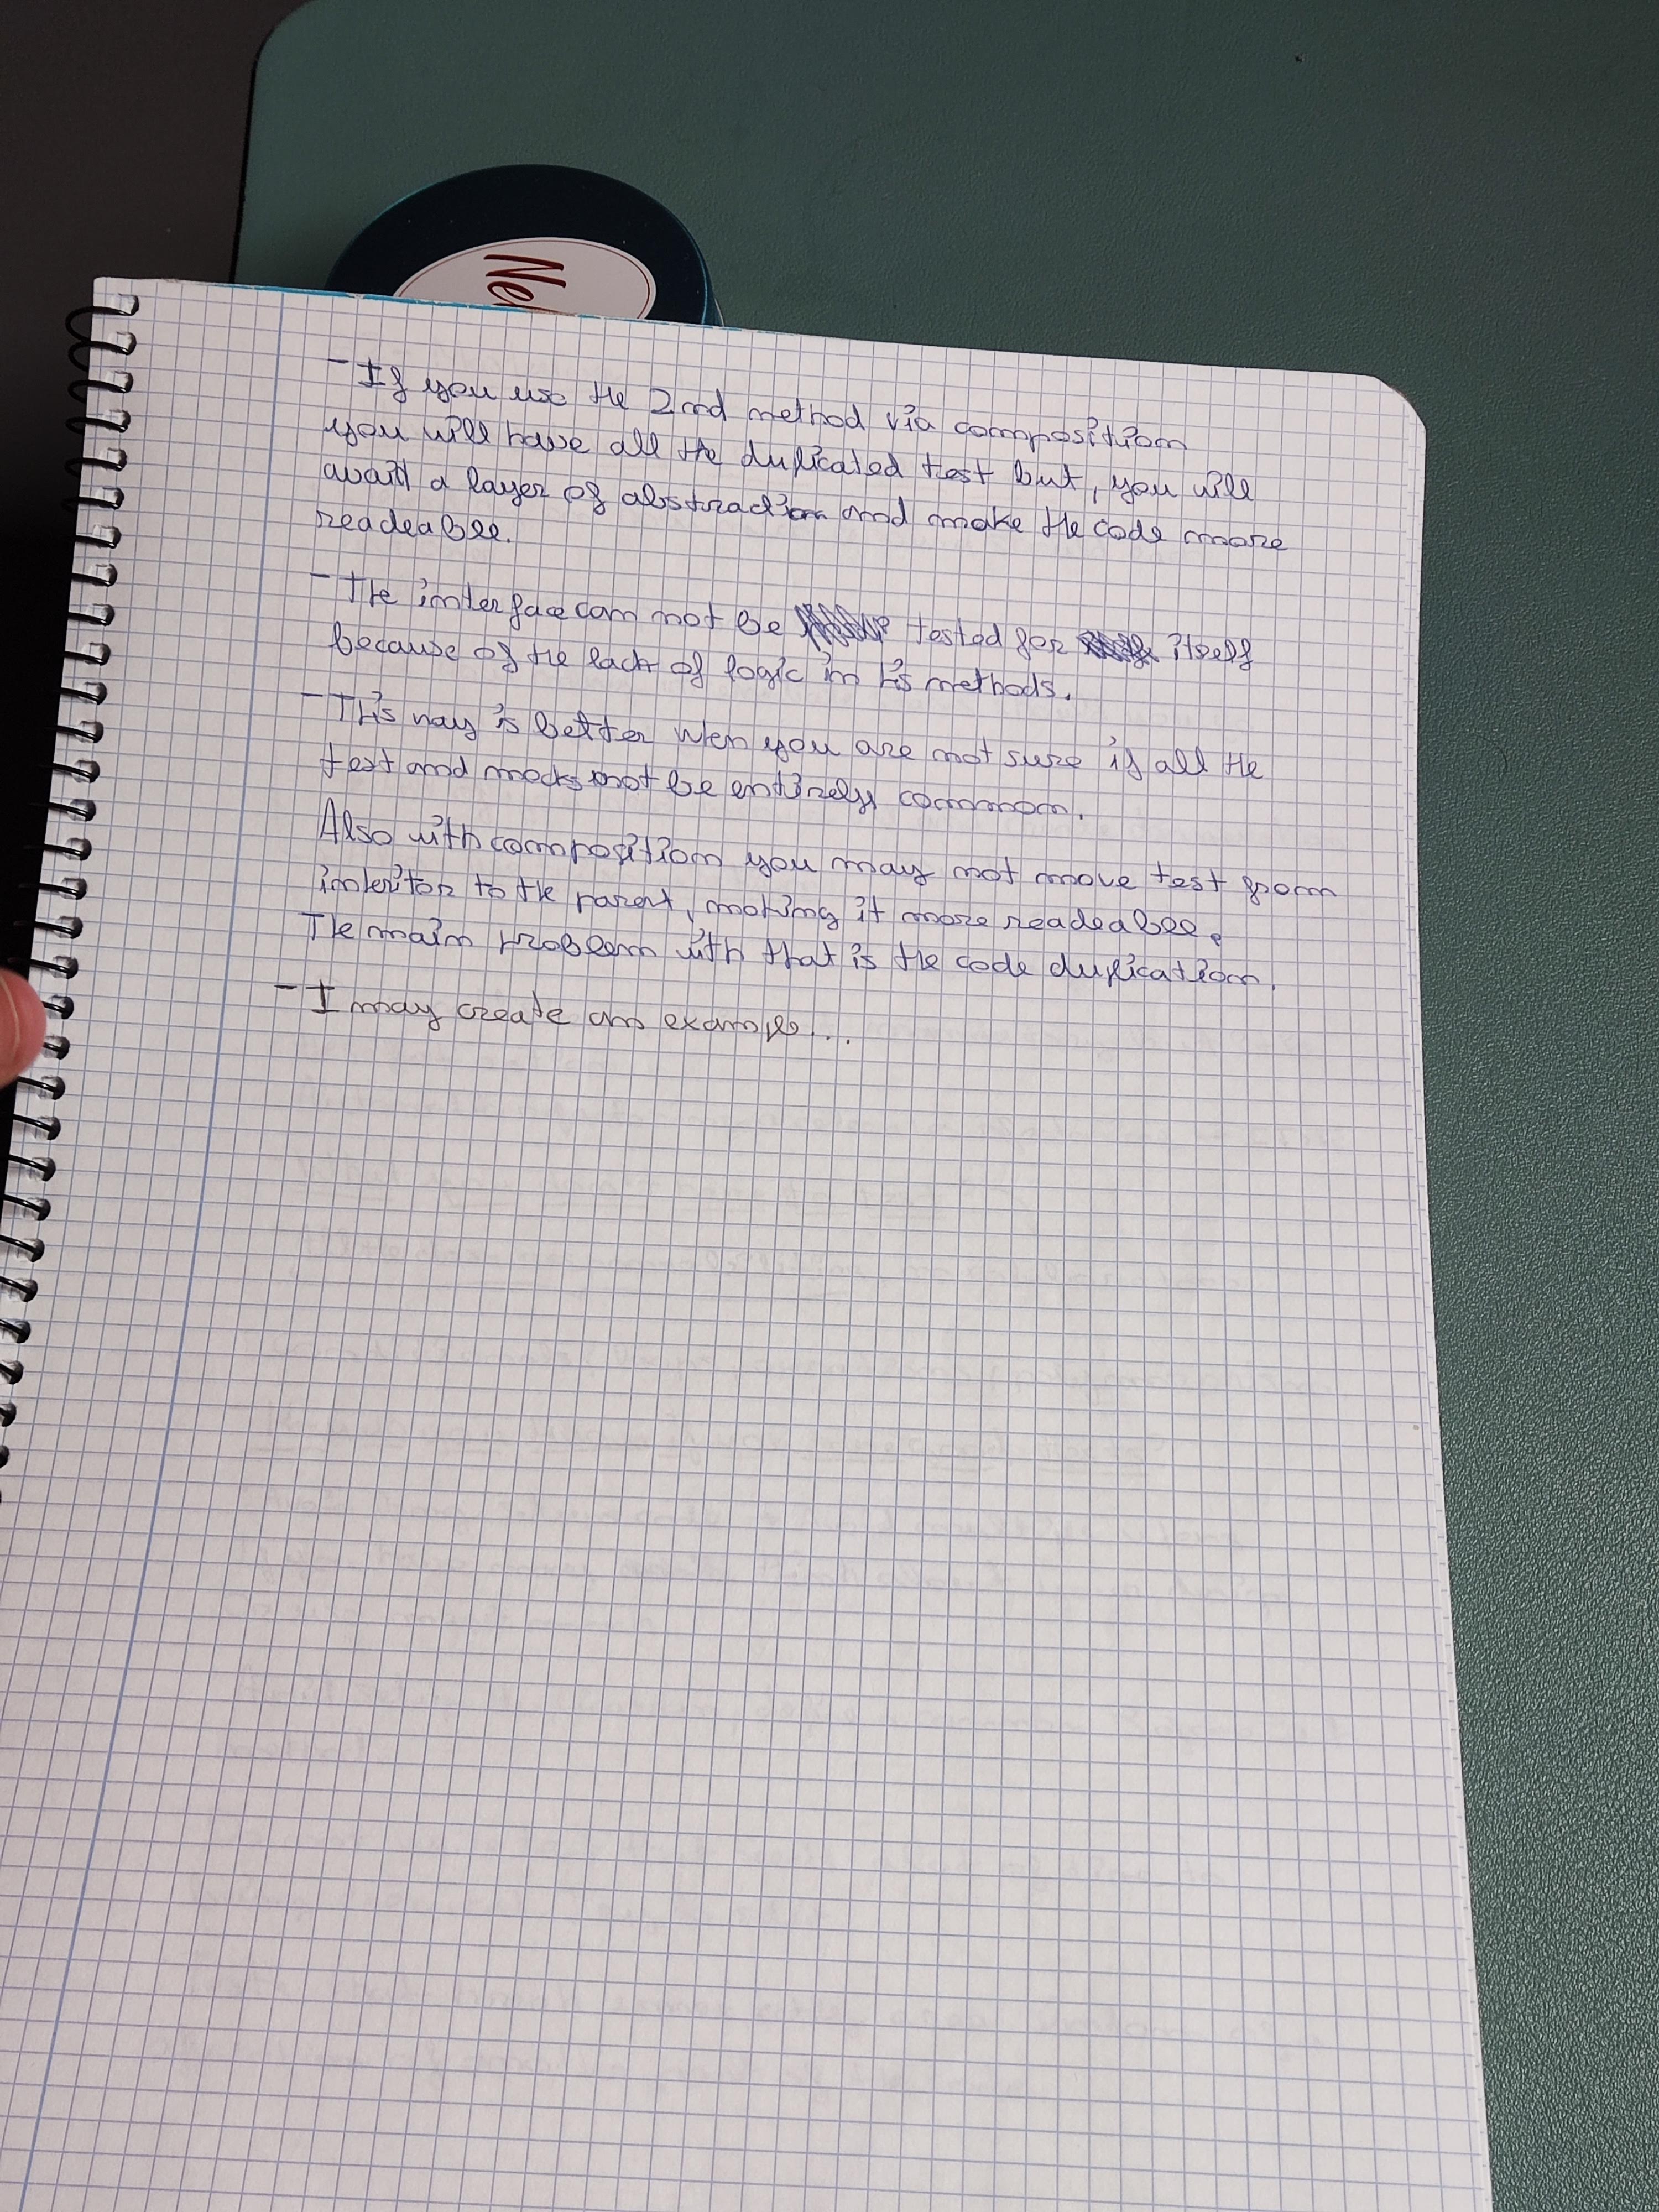 Ne
- If you use the 2nd method via composition
you will have all the duplicated test but, you will
avait a layer of abstraction and make the code more
readeable.
- The interface can not be tested for itself
because of the lack of logic in his methods.
- This way is better when you are not sure if all the
test and mocks not be entirely common.
Also with composition you may not move test from
inheritor to the parent, making it more readeable.
The main problem with that is the code duplication.
- I may create an example...